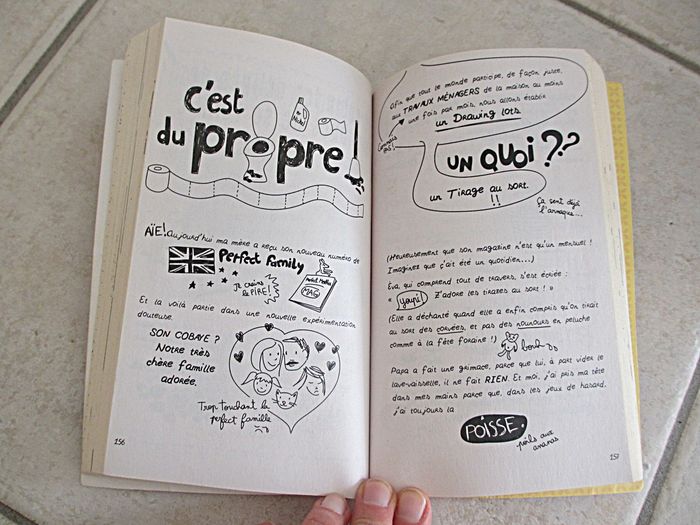 c'est
du propre!
AÏE! aujourd'hui ma mère a reçu son nouveau numéro de
Perfect Family
Je crains
le PIRE!
MAG
Et la voilà partie dans une nouvelle expérimentation
douteuse.
SON COBAYE ?
Notre très
chère famille
adorée.
Trop touchant la
perfect famille
156
Afin que tout le monde participe, de façon juste,
aux TRAVAUX MÉNAGERS de la maison au moins
une fois par mois, nous allons établir
un Drawing lots
UN QUOI ???
un Tirage au sort.
!!
Ça sent déjà
l'arnaque...
(Heureusement que son magazine n'est qu'un mensuel !
Imaginez que ç'ait été un quotidien...)
Éva, qui comprend tout de travers, s'est écriée :
« Youpi! Z'adore les tirazes au sort ! »
(Elle a déchanté quand elle a enfin compris qu'on tirait
au sort des corvées, et pas des nounours en peluche
comme à la fête foraine !)
Papa a fait une grimace, parce que lui, à part vider le
lave-vaisselle, il ne fait RIEN. Et moi, j'ai pris ma tête
dans mes mains parce que, dans les jeux de hasard,
j'ai toujours la
POISSE.
poils aux
ananas
157